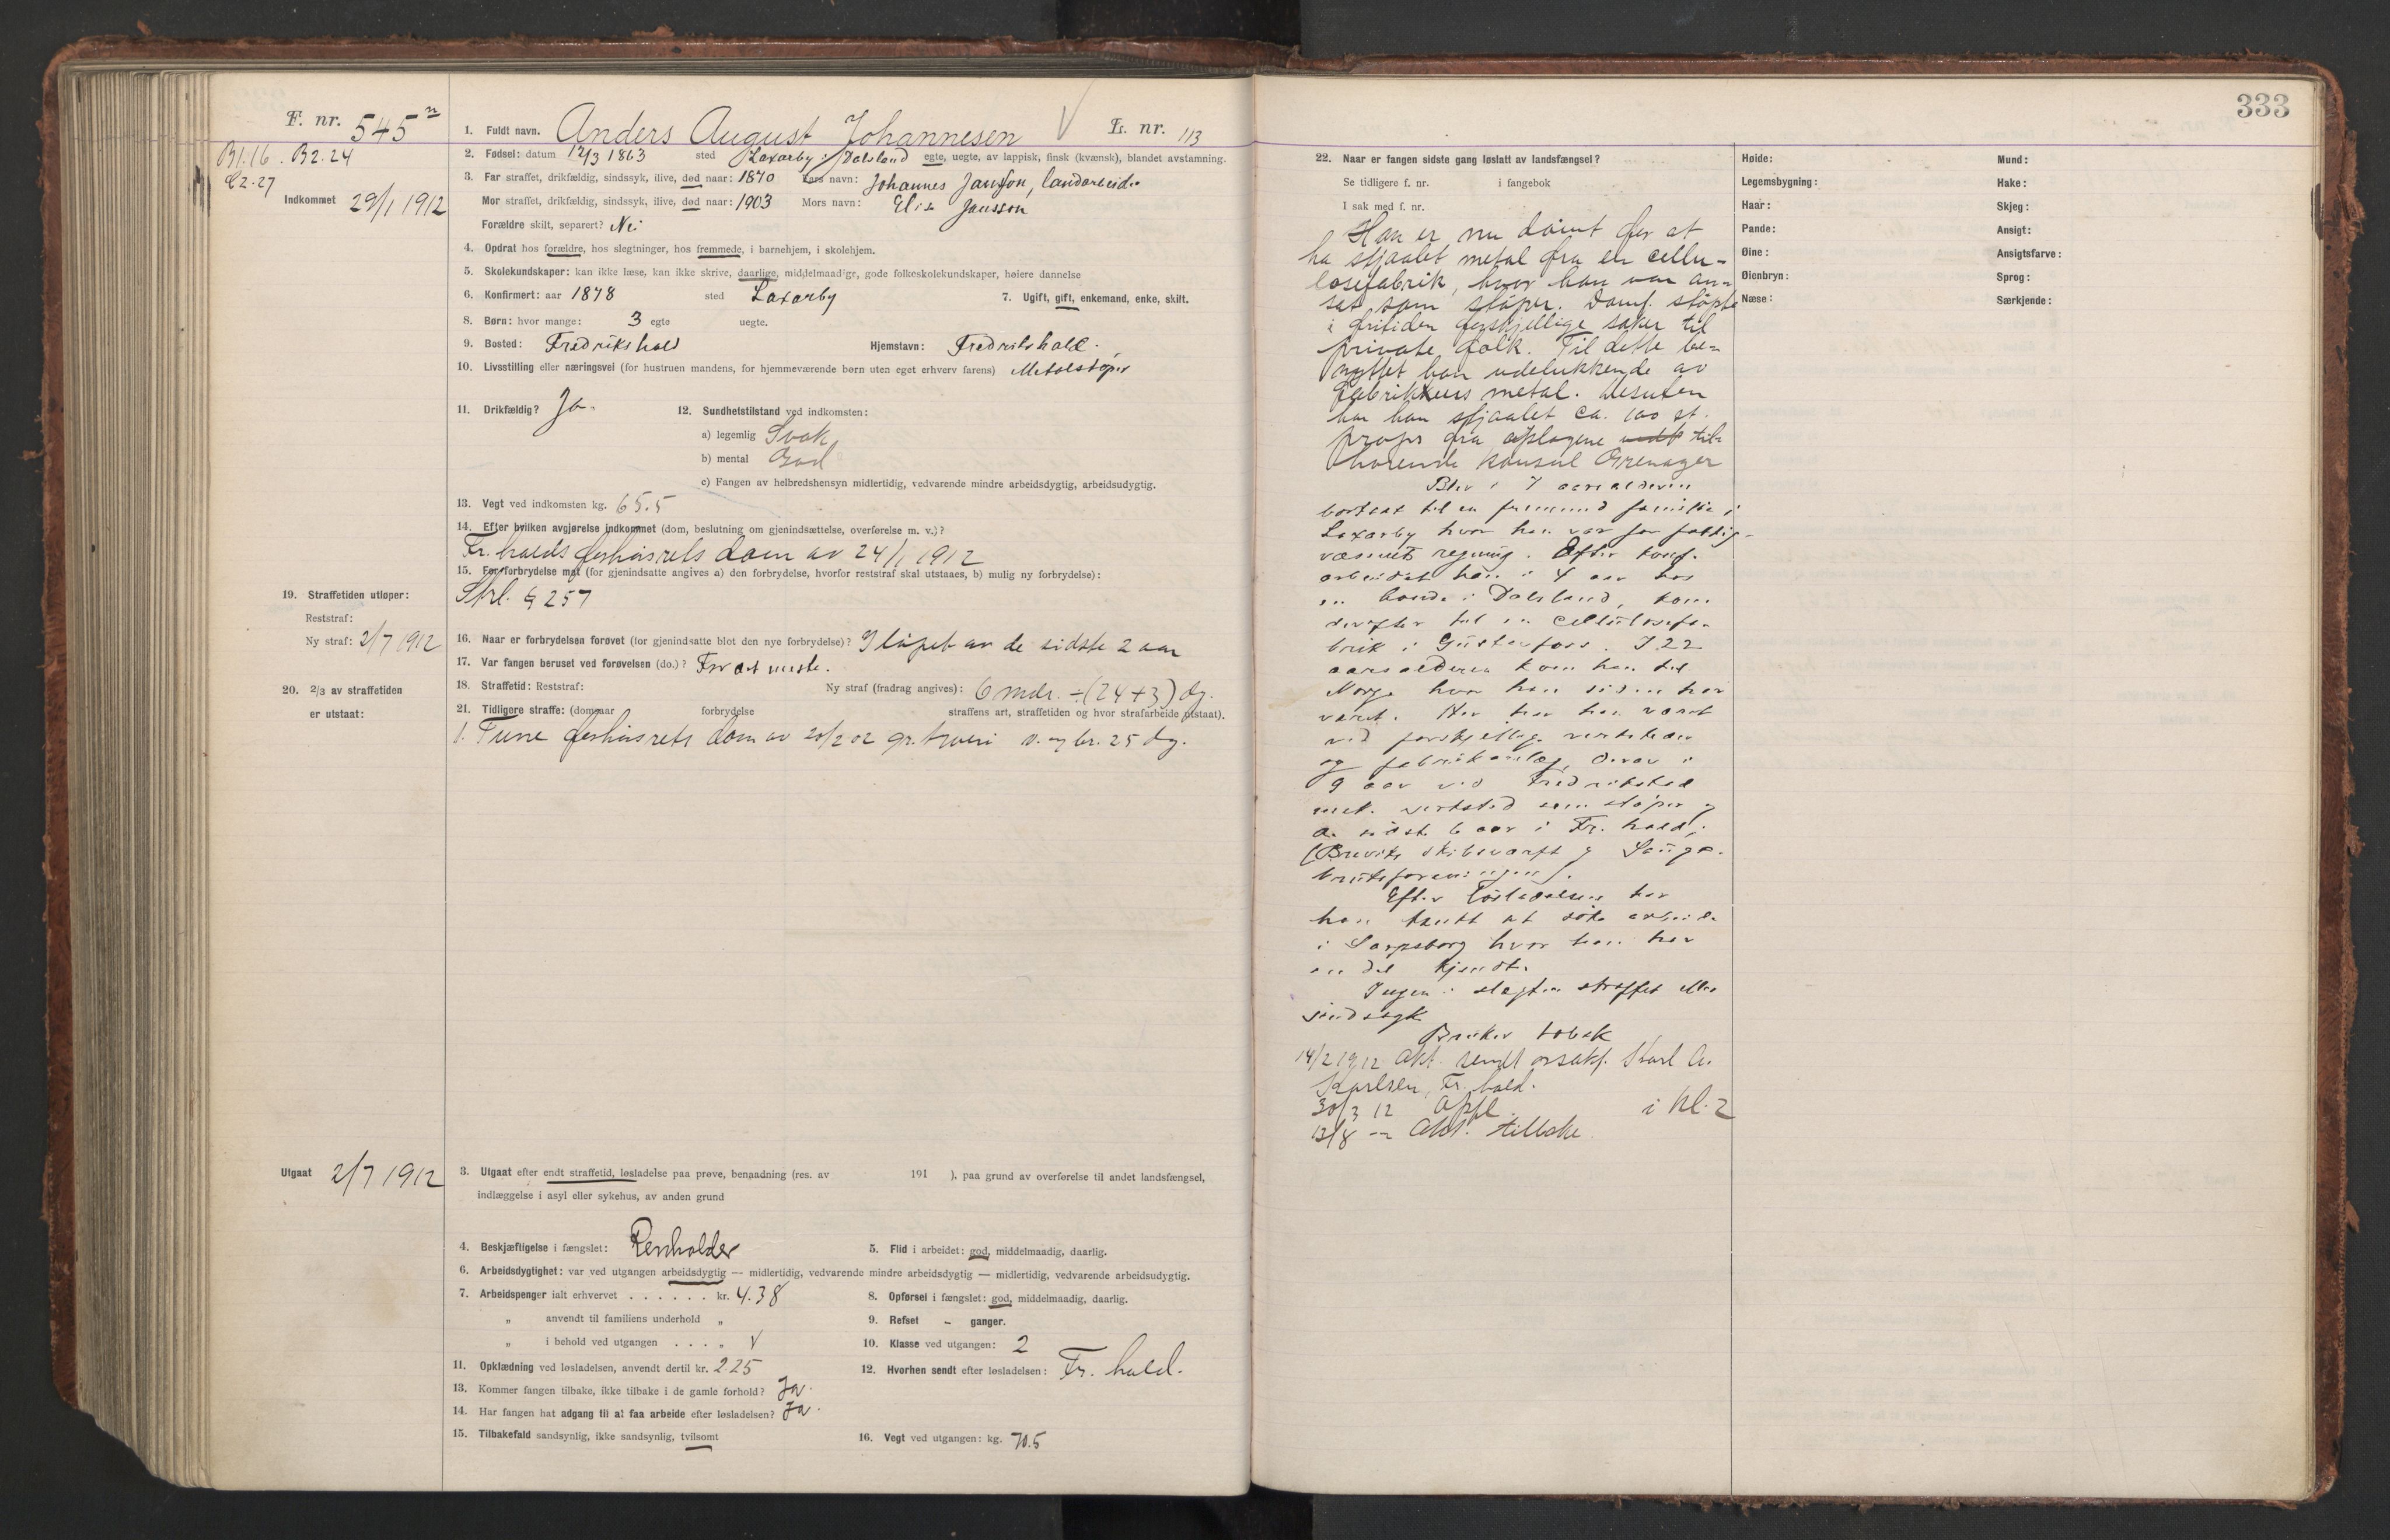 333
F. nr. 545 n
1. Fuldt navn. Anders August Johannesen V L. nr. 113
B1.16. B2.24
C2.27
2. Fødsel: datum 12/3 1863 sted Laxarby i Dalsland egte, uegte, av lappisk, finsk (kvænsk), blandet avstamning.
Indkommet 29/1 1912
3. Far straffet, drikfældig, sindssyk, ilive, død naar: 1870 Fars navn: Johannes Jansson, landarbeider
Mor straffet, drikfældig, sindssyk, ilive, død naar: 1903 Mors navn: Elise Jansson
Forældre skilt, separert? Nei
4. Opdrat hos forældre, hos slegtninger, hos fremmede, i barnehjem, i skolehjem.
5. Skolekundskaper: kan ikke læse, kan ikke skrive, daarlige, middelmaadige, gode folkeskolekundskaper, høiere dannelse
6. Konfirmert: aar 1878 sted Laxarby 7. Ugift, gift, enkemand, enke, skilt.
8. Børn: hvor mange: 3 egte uegte.
9. Bosted: Fredrikshald Hjemstavn: Fredrikshald.
10. Livsstilling eller næringsvei (for hustruen mandens, for hjemmeværende børn uten eget erhverv farens) Metalstøper
11. Drikfældig? Ja. 12. Sundhetstilstand ved indkomsten:
a) legemlig Svak
b) mental God
c) Fangen av helbredshensyn midlertidig, vedvarende mindre arbeidsdygtig, arbeidsudygtig.
13. Vegt ved indkomsten kg. 65.5
14. Efter hvilken avgjørelse indkommet (dom, beslutning om gjenindsættelse, overførelse m. v.)?
Fr.halds forhørsrets dom av 24/1 1912
15. For forbrydelse mot (for gjenindsatte angives a) den forbrydelse, hvorfor reststraf skal utstaaes, b) mulig ny forbrydelse):
Strl. § 257
19. Straffetiden utløper:
Reststraf:
Ny straf: 2/7 1912
16. Naar er forbrydelsen forøvet (for gjenindsatte blot den nye forbrydelse)? I løpet av de sidste 2 aar
17. Var fangen beruset ved forøvelsen (do.)? For det meste.
18. Straffetid: Reststraf: Ny straf (fradrag angives): 6 mdr. ÷ (24+3) dg.
20. 2/3 av straffetiden
er utstaat:
21. Tidligere straffe: (domsaar forbrydelse straffens art, straffetiden og hvor strafarbeide utstaat).
1. Tune forhørsrets dom av 20/2 02 gr. tyveri v. og br. 25 dg.
Utgaat 2/7 1912
3. Utgaat efter endt straffetid, løsladelse paa prøve, benaadning (res. av 191 ), paa grund av overførelse til andet landsfængsel,
indlæggelse i asyl eller sykehus, av anden grund
4. Beskjæftigelse i fængslet: Renholder 5. Flid i arbeidet: god, middelmaadig, daarlig.
6. Arbeidsdygtighet: var ved utgangen arbeidsdygtig — midlertidig, vedvarende mindre arbeidsdygtig — midlertidig, vedvarende arbeidsudygtig.
7. Arbeidspenger ialt erhvervet . . . . . . kr. 4.38 8. Opførsel i fængslet: god, middelmaadig, daarlig.
„ anvendt til familiens underhold „ 9. Refset - ganger.
„ i behold ved utgangen . . . . „ V 10. Klasse ved utgangen: 2
11. Opklædning ved løsladelsen, anvendt dertil kr. 2.25 12. Hvorhen sendt efter løsladelsen: Fr. hald.
13. Kommer fangen tilbake, ikke tilbake i de gamle forhold? Ja.
14. Har fangen hat adgang til at faa arbeide efter løsladelsen? Ja.
15. Tilbakefald sandsynlig, ikke sandsynlig, tvilsomt 16. Vegt ved utgangen: kg. 70.5
22. Naar er fangen sidste gang løslatt av landsfængsel?
Se tidligere f. nr. i fangebok
I sak med f. nr.
Han er nu dømt for at
ha stjaalet metal fra en cellu-
losefabrik, hvor han var an-
sat som støper. Domf. støpte
i fritiden forskjellige saker til
private folk. Til dette be-
nyttet han udelukkende av
fabrikkens metal. Desuten
har han stjaalet ca. 100 st.
props fra oplagene til-
hørende konsul Grenager
Blev i 7 aarsalderen
bortsat til en fremmed familie i
Laxarby hvor han var for fattig-
væsenets regning. Efter konf.
arbeidet han i 4 aar hos
en bonde i Dalsland, kom
derefter til en cellulosefa-
brik i Gustafsfors. I 22
aarsalderen kom han til
Norge hvor han siden har
været. Her har han været
ved forskjellige verksteder
og fabrikanlæg, derav i
9 aar ved Fredrikstad
mek. verksted som støper og
de sidste 6 aar i Fr.hald,
(Breviks skibsværft og Sauge-
brugsforeningen).
Efter løsladelsen har
han tænkt at søke arbeide
i Sarpsborg hvor han har
en del kjendte.
Ingen i slegten straffet eller
sindssyk
Bruker tobak
14/2 1912 Akt. sendt orsakf. Karl A.
Karlsen, Fr.hald.
30/3 12 Opfl. i kl. 2
13/8 — Akt. tilbake.
Høide:
Legemsbygning:
Haar:
Pande:
Øine:
Øienbryn:
Næse:
Mund:
Hake:
Skjeg:
Ansigt:
Ansigtsfarve:
Sprog:
Særkjende: